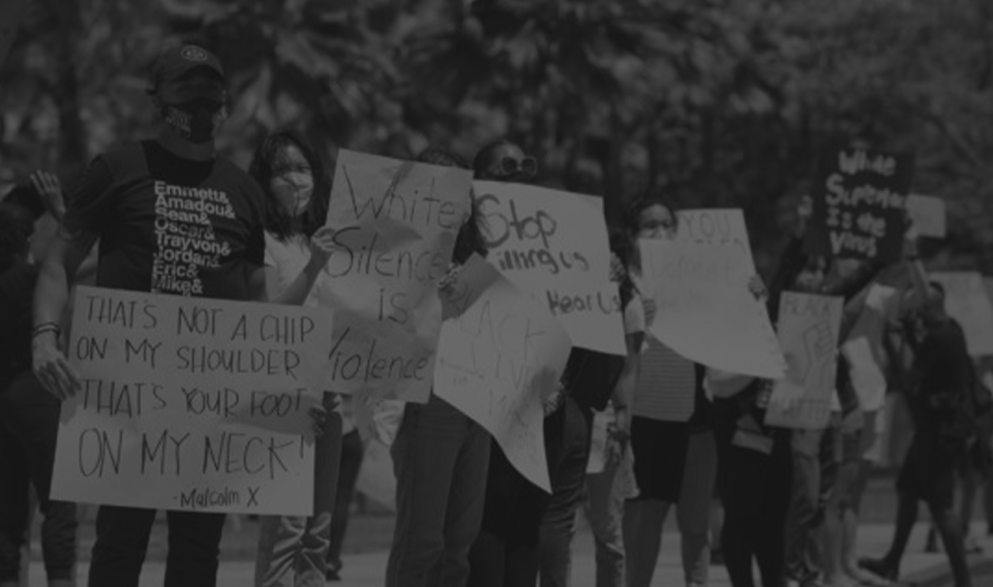 Emmett&
Amadou&
Sean&
Oscar&
Trayvon&
Jordan&
Eric&
Mike&
THAT'S NOT A CHIP
ON MY SHOULDER
THAT'S YOUR FOOT
ON MY NECK!
-Malcolm X
White
Silence
is
Violence
Stop
killing us
Hear Us
BLACK
YOU
White
Is the
Virus
BLACK